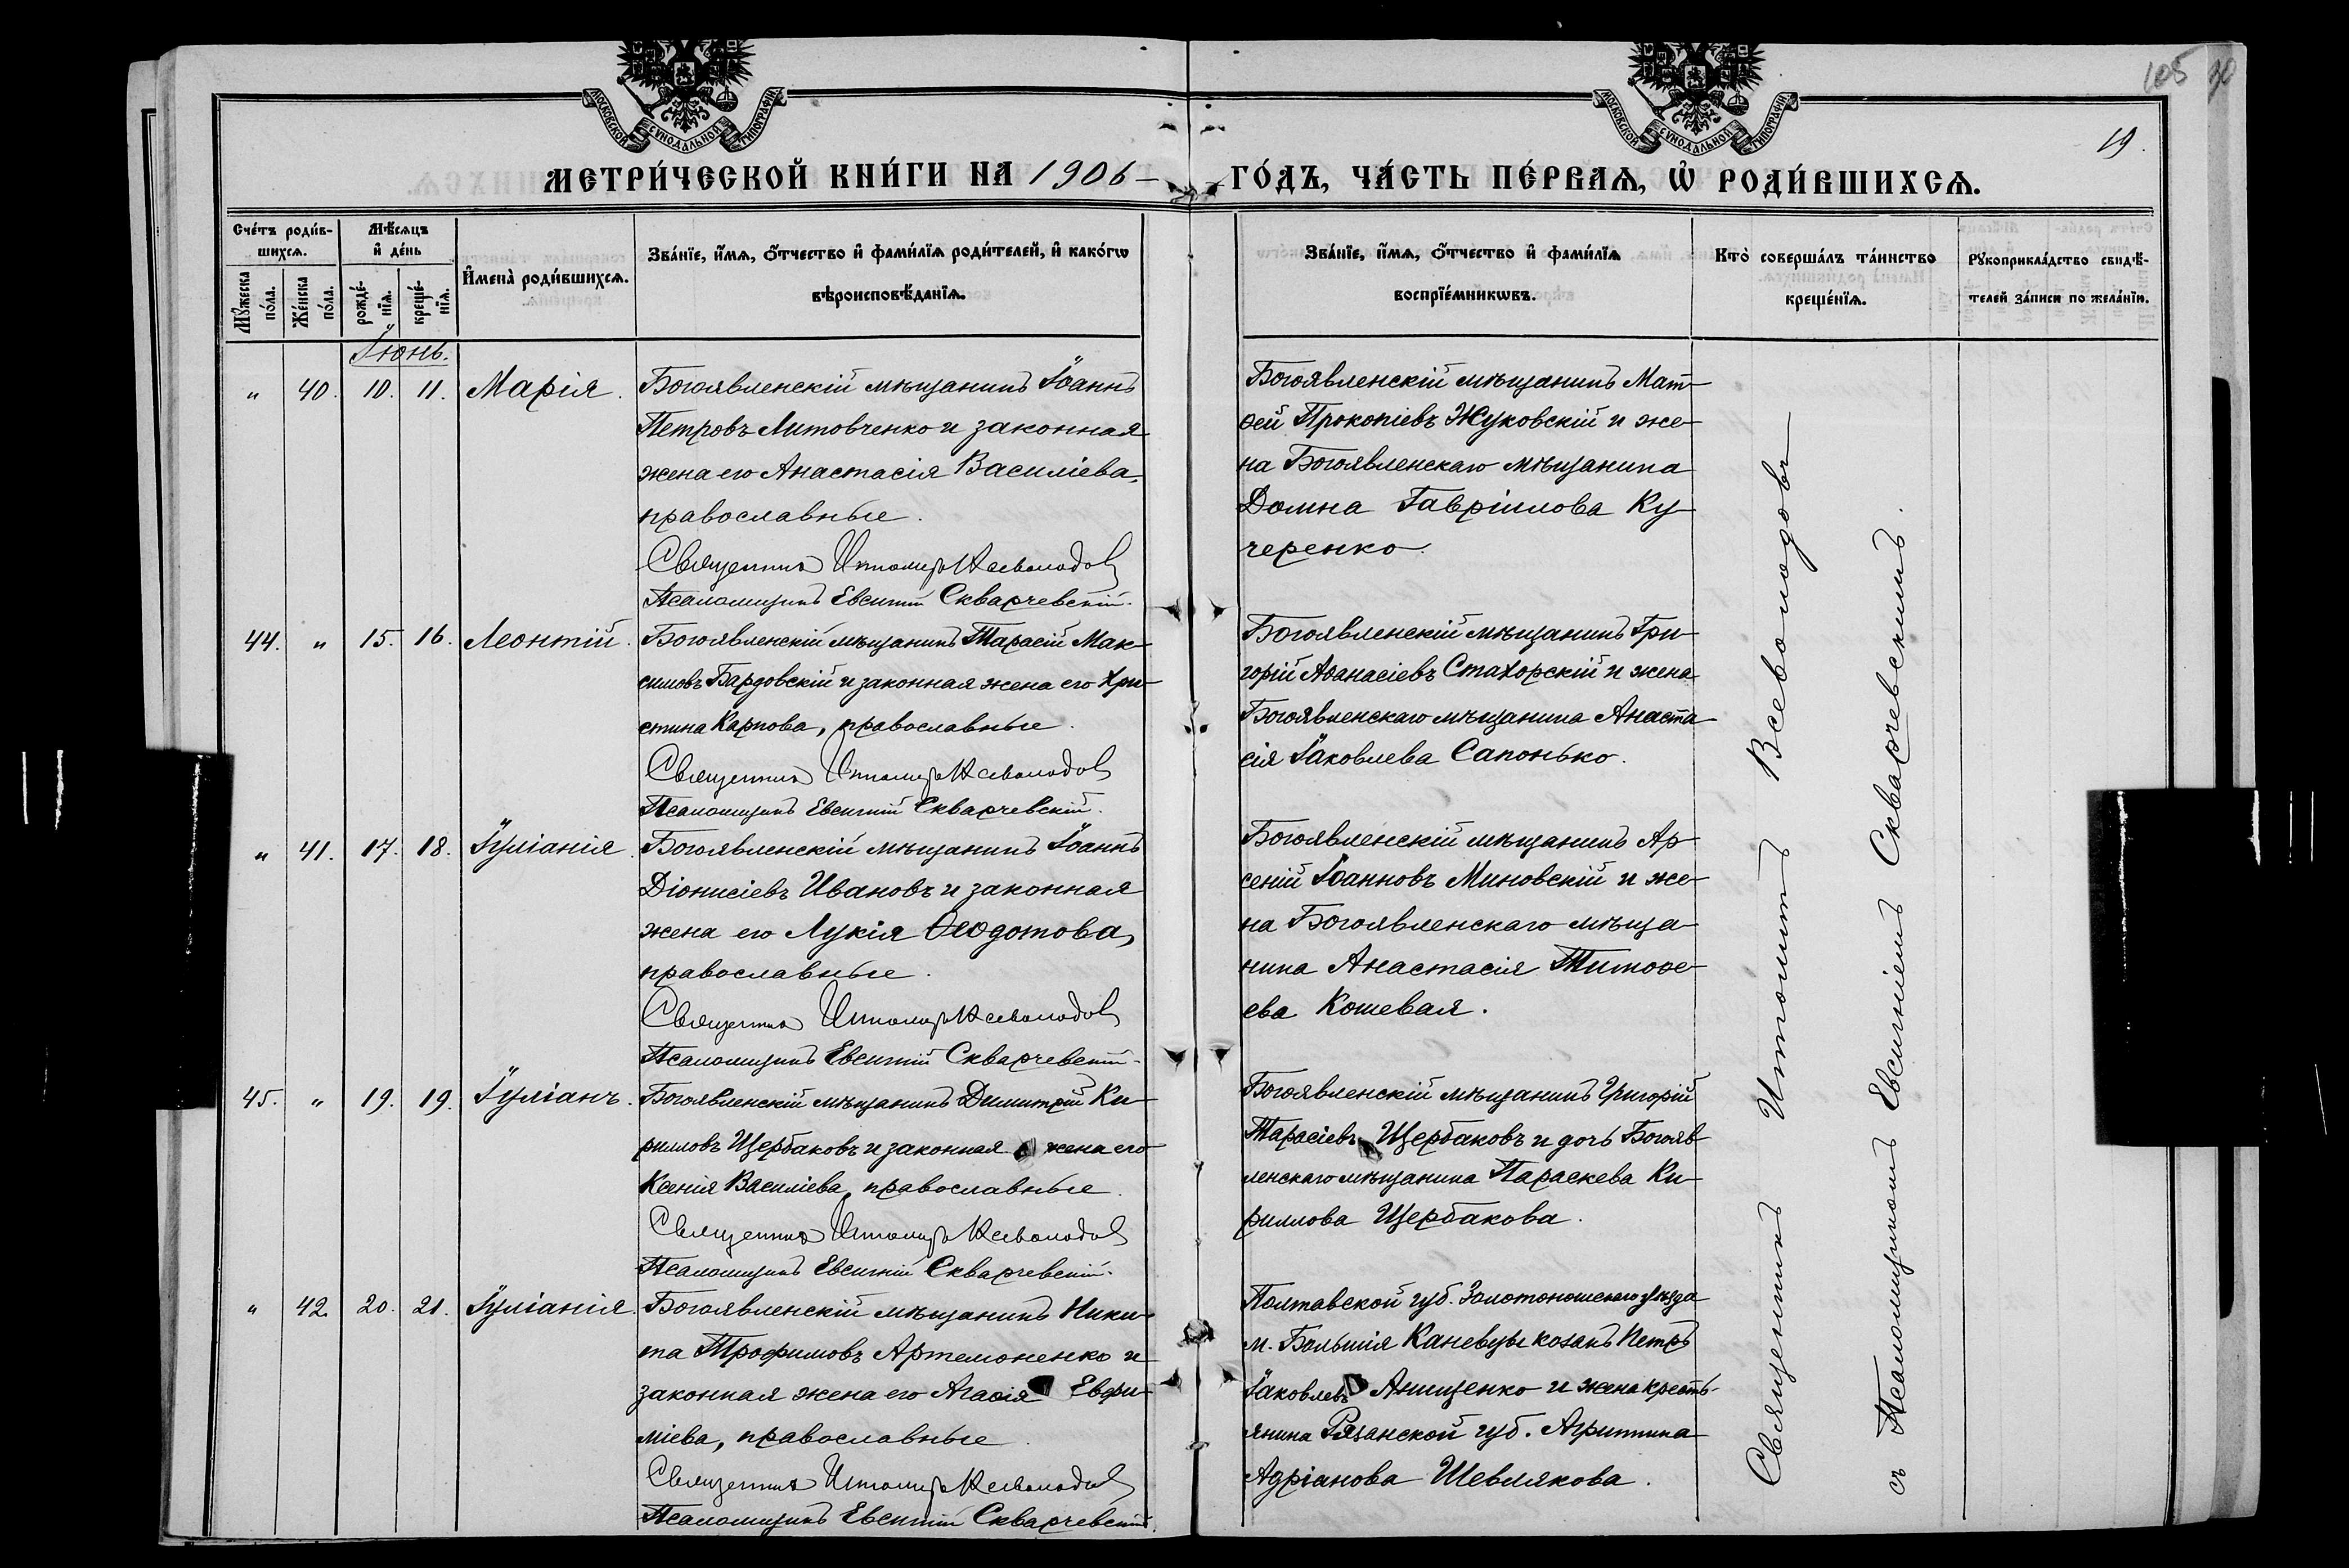 105 90
19.
МОСКОВСКОЙ СУНОДАЛЬНОЙ ТИПОГРАФІИ
МОСКОВСКОЙ СУНОДАЛЬНОЙ ТИПОГРАФІИ
МЕТРИ́ЧЕСКОЙ КНИ́ГИ НА 1906 —
ГО́ДЪ, ЧА́СТЬ ПЕ́РВАѦ, Ѽ РОДИ́ВШИХСѦ.
Сче́тъ роди́в-
шихсѧ.
Мꙋ́жеска
по́ла.
Же́нска
по́ла.
Мѣ́сѧцъ
и҆ де́нь
рожде́-
нїѧ.
креще́-
нїѧ.
И҆мена̀ роди́вшихсѧ.
Зва́нїе, и҆́мѧ, ѻ҆́тчество и҆ фами́лїѧ роди́телей, и҆ како́гѡ
вѣроисповѣ́данїѧ.
Зва́нїе, и҆́мѧ, ѻ҆́тчество и҆ фами́лїѧ
воспрїе́мникѡвъ.
Кто̀ соверша́лъ та́инство
креще́нїѧ.
Рꙋкоприкла́дство свидѣ́-
телей за́писи по жела́нїю.
Іюнь.
" 40. 10. 11. Марія.
Богоявленскій мѣщанинъ Іоаннъ
Петровъ Литовченко и законная
жена его Анастасія Василіева,
православные.
Священникъ Ипполитъ Всеволодовъ
Псаломщикъ Евсигній Скварчевскій.
Богоявленскій мѣщанинъ Мат-
ѳей Прокопіевъ Жуковскій и же-
на Богоявленскаго мѣщанина
Домна Гавріилова Ку-
черенко.
44. " 15. 16. Леонтій.
Богоявленскій мѣщанинъ Тарасій Мак-
симовъ Бардовскій и законная жена его Хри-
стина Карпова, православные.
Священникъ Ипполитъ Всеволодовъ
Псаломщикъ Евсигній Скварчевскій.
Богоявленскій мѣщанинъ Гри-
горій Аѳанасіевъ Стахорскій и жена
Богоявленскаго мѣщанина Анаста-
сія Іаковлева Сапонько.
" 41. 17. 18. Іуліанія.
Богоявленскій мѣщанинъ Іоаннъ
Діонисіевъ Ивановъ и законная
жена его Лукія Ѳеодотова,
православные.
Священникъ Ипполитъ Всеволодовъ
Псаломщикъ Евсигній Скварчевскій.
Богоявленскій мѣщанинъ Ар-
сеній Іоанновъ Миновскій и же-
на Богоявленскаго мѣща-
нина Анастасія Тимоѳе-
ева Кошевая.
45. " 19. 19. Іуліанъ.
Богоявленскій мѣщанинъ Димитрій Ки-
рилловъ Щербаковъ и законная жена его
Ксенія Василіева, православные.
Священникъ Ипполитъ Всеволодовъ
Псаломщикъ Евсигній Скварчевскій.
Богоявленскій мѣщанинъ Григорій
Тарасіевъ Щербаковъ и дочь Богояв-
ленскаго мѣщанина Параскева Ки-
риллова Щербакова.
" 42. 20. 21. Іуліанія.
Богоявленскій мѣщанинъ Ники-
та Трофимовъ Артемоненко и
законная жена его Агаѳія Евфи-
міева, православные.
Священникъ Ипполитъ Всеволодовъ
Псаломщикъ Евсигній Скварчевскій.
Полтавской губ. Золотоношскаго уѣзда
м. Большія Каневцы козакъ Петръ
Іаковлевъ Анищенко и жена кресть-
янина Рязанской губ. Агриппина
Адріанова Шевлякова.
Священникъ Ипполитъ Всеволодовъ
съ Псаломщикомъ Евсигніемъ Скварчевскимъ.